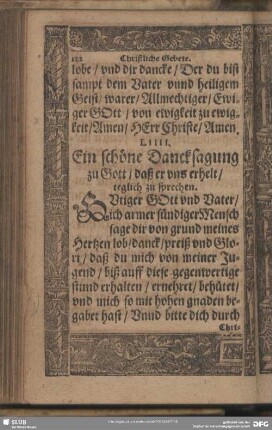 122 Christliche Gebete.
lobe / vnd dir dancke / Der du bist
sampt dem Vater vnnd heiligem
Geist / warer / Allmechtiger / Ewi-
ger GOtt / von ewigkeit zu ewig-
keit / Amen / HErr Christe / Amen
LIIII.
Ein schöne Dancksagung
zu Gott / daß er vns erhelt /
teglich zu sprechen.
GVtiger GOtt vnd Vater /
ich armer sündiger Mensch
sage dir von grund meines
Hertzen lob / danck / preiß vnd Glo-
ri / daß du mich von meiner Ju-
gend / biß auff diese gegenwertige
stund erhalten / ernehret / behütet /
vnd mich so mit hohen gnaden be-
gabet hast / Vnnd bitte dich durch
Chri-
SLUB
DFG